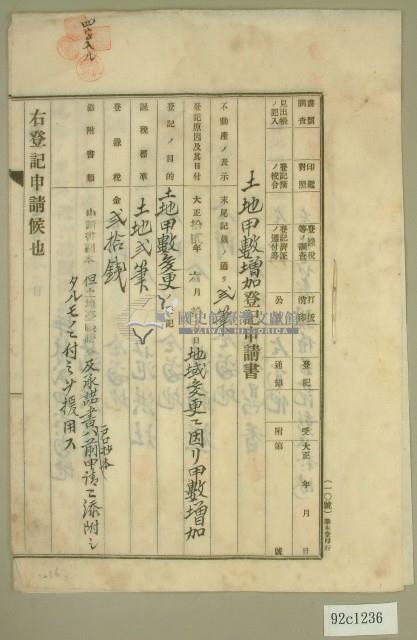 四百五九
(一〇號)
書類調査
印鑑對照
登錄稅等ノ調査
登記
受
大正　年　月　日
附
第　號
見出帳ノ記入
登記簿ノ校合
公
通知
土地甲數增加登記申請書
不動產ノ表示
末尾記載ノ通リ
弐筆
登記原因及其日付
大正拾弐年　月　日地域変更ニ因リ甲數增加
登記ノ目的
土地甲數変更ノ登記
課稅標準
土地弐筆
登錄稅
金弐拾錢
添附書類
申請書副本
但土地台帳謄本及承諾書
戶口抄本
ハ前申請ニ添附シタルモノニ付ミヲ援用ス
右登記申請候也
國史館臺灣文獻館
TAIWAN HISTORICA
92c1236